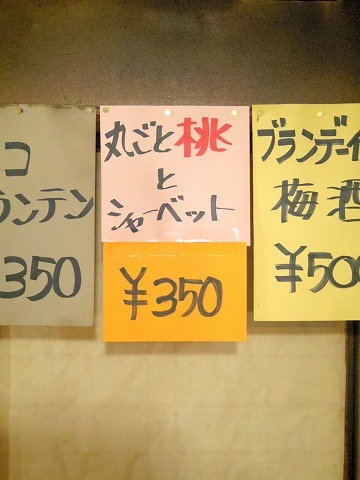 コ
ランテン
350
丸ごと桃
と
シャーベット
¥350
ブランデー
梅酒
¥500